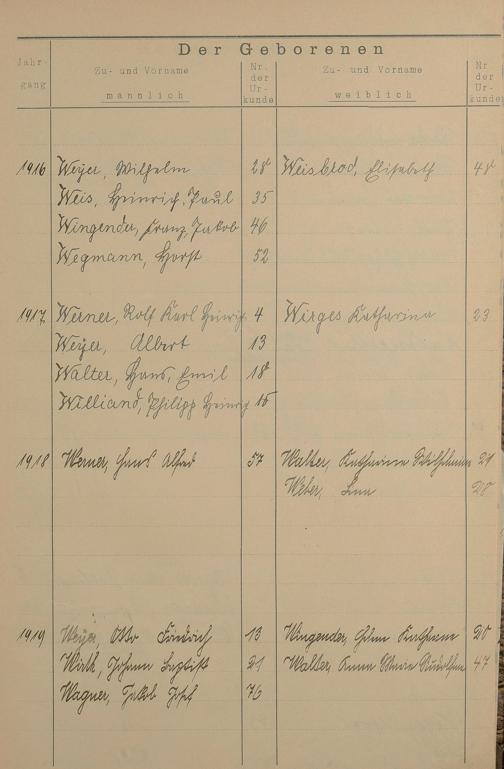 Der Geborenen
Jahr-
gang
Zu- und Vorname
männlich
Nr.
der
Ur-
kunde
Zu- und Vorname
weiblich
Nr
der
Ur-
kunde
1916 Weyer, Wilhelm 28 Weisbrod, Elisabeth 48
Weis, Heinrich, Paul 35
Wingender, Franz, Jakob 46
Wegmann, Horst 52
1917 Werner, Rolf Karl Heinrich 4 Wirges Katharina 23
Weyer, Albert 13
Walter, Hans, Emil 18
Williand, Philipp Heinrich 15
1918 Werner, Hans Alfred 57 Walter, Katharina Wilhelmine 21
Weber, 28
1919 Weyer, Otto Friedrich 13 Wingender, Katharina 20
Wirth, Johann Baptist 21 Walter, Anna Maria 47
Wagner, Jakob Josef 76